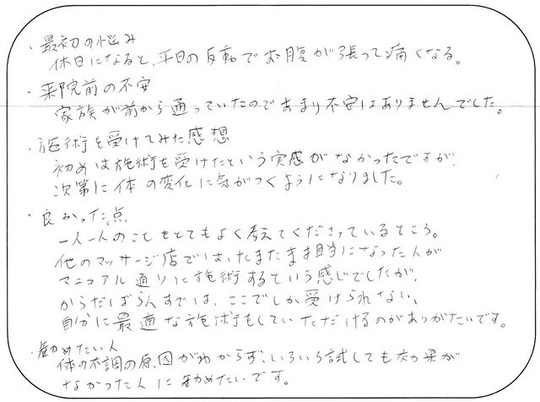 ・最初の悩み
休日になると、平日の反動でお腹が張って痛くなる。
・来院前の不安
家族が前から通っていたのであまり不安はありませんでした。
・施術を受けてみた感想
初めは施術を受けたという実感がなかったですが、
次第に体の変化に気がつくようになりました。
・良かった点
一人一人のことをとてもよく考えてくださっているところ。
他のマッサージ店では、たまたま担当になった人が
マニュアル通りに施術するという感じでしたが、
からだばらんすでは、ここでしか受けられない、
自分に最適な施術をしていただけるのがありがたいです。
・勧めたい人
体の不調の原因がわからず、いろいろ試しても効果が
なかった人に勧めたいです。